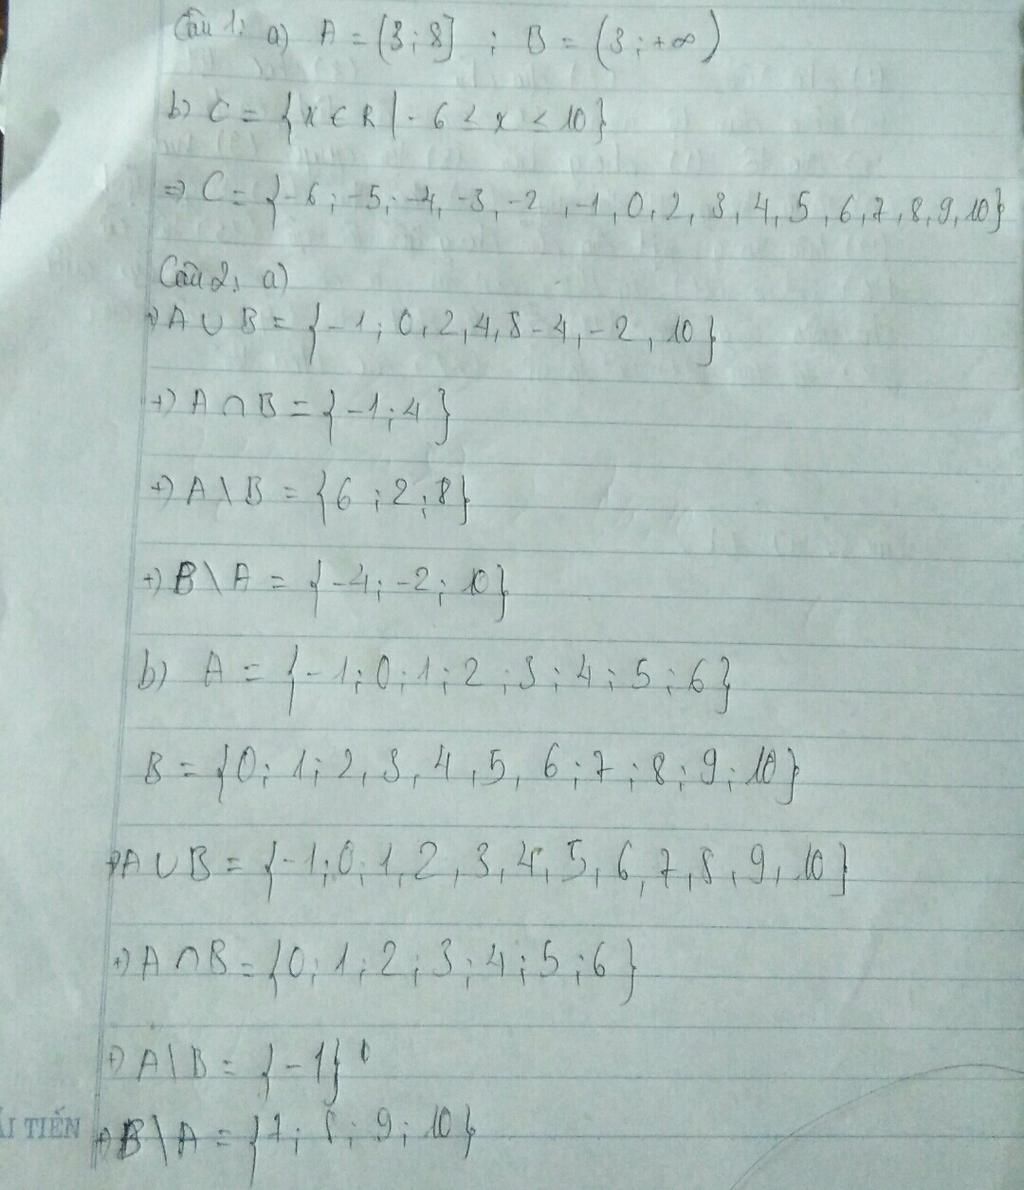 Câu 1: a) A = (3; 8] ; B = (3; +∞)
b) C = {x ∈ R | -6 ≤ x ≤ 10}
=> C = {-6; -5; -4, -3, -2, -1, 0, 2, 3, 4, 5, 6, 7, 8, 9, 10}
Câu 2: a)
+) A ∪ B = {-1; 0, 2, 4, 8 -4, -2, 10}
+) A ∩ B = {-1; 4}
+) A \ B = {6; 2; 8}
+) B \ A = {-4; -2; 10}
b) A = {-1; 0; 1; 2; 3; 4; 5; 6}
B = {0; 1; 2, 3, 4, 5, 6; 7; 8; 9; 10}
+) A ∪ B = {-1; 0; 1, 2, 3, 4, 5, 6, 7, 8, 9, 10}
+) A ∩ B = {0; 1; 2; 3; 4; 5; 6}
+) A \ B = {-1}
+) B \ A = {7; 8; 9; 10}
TIẾN